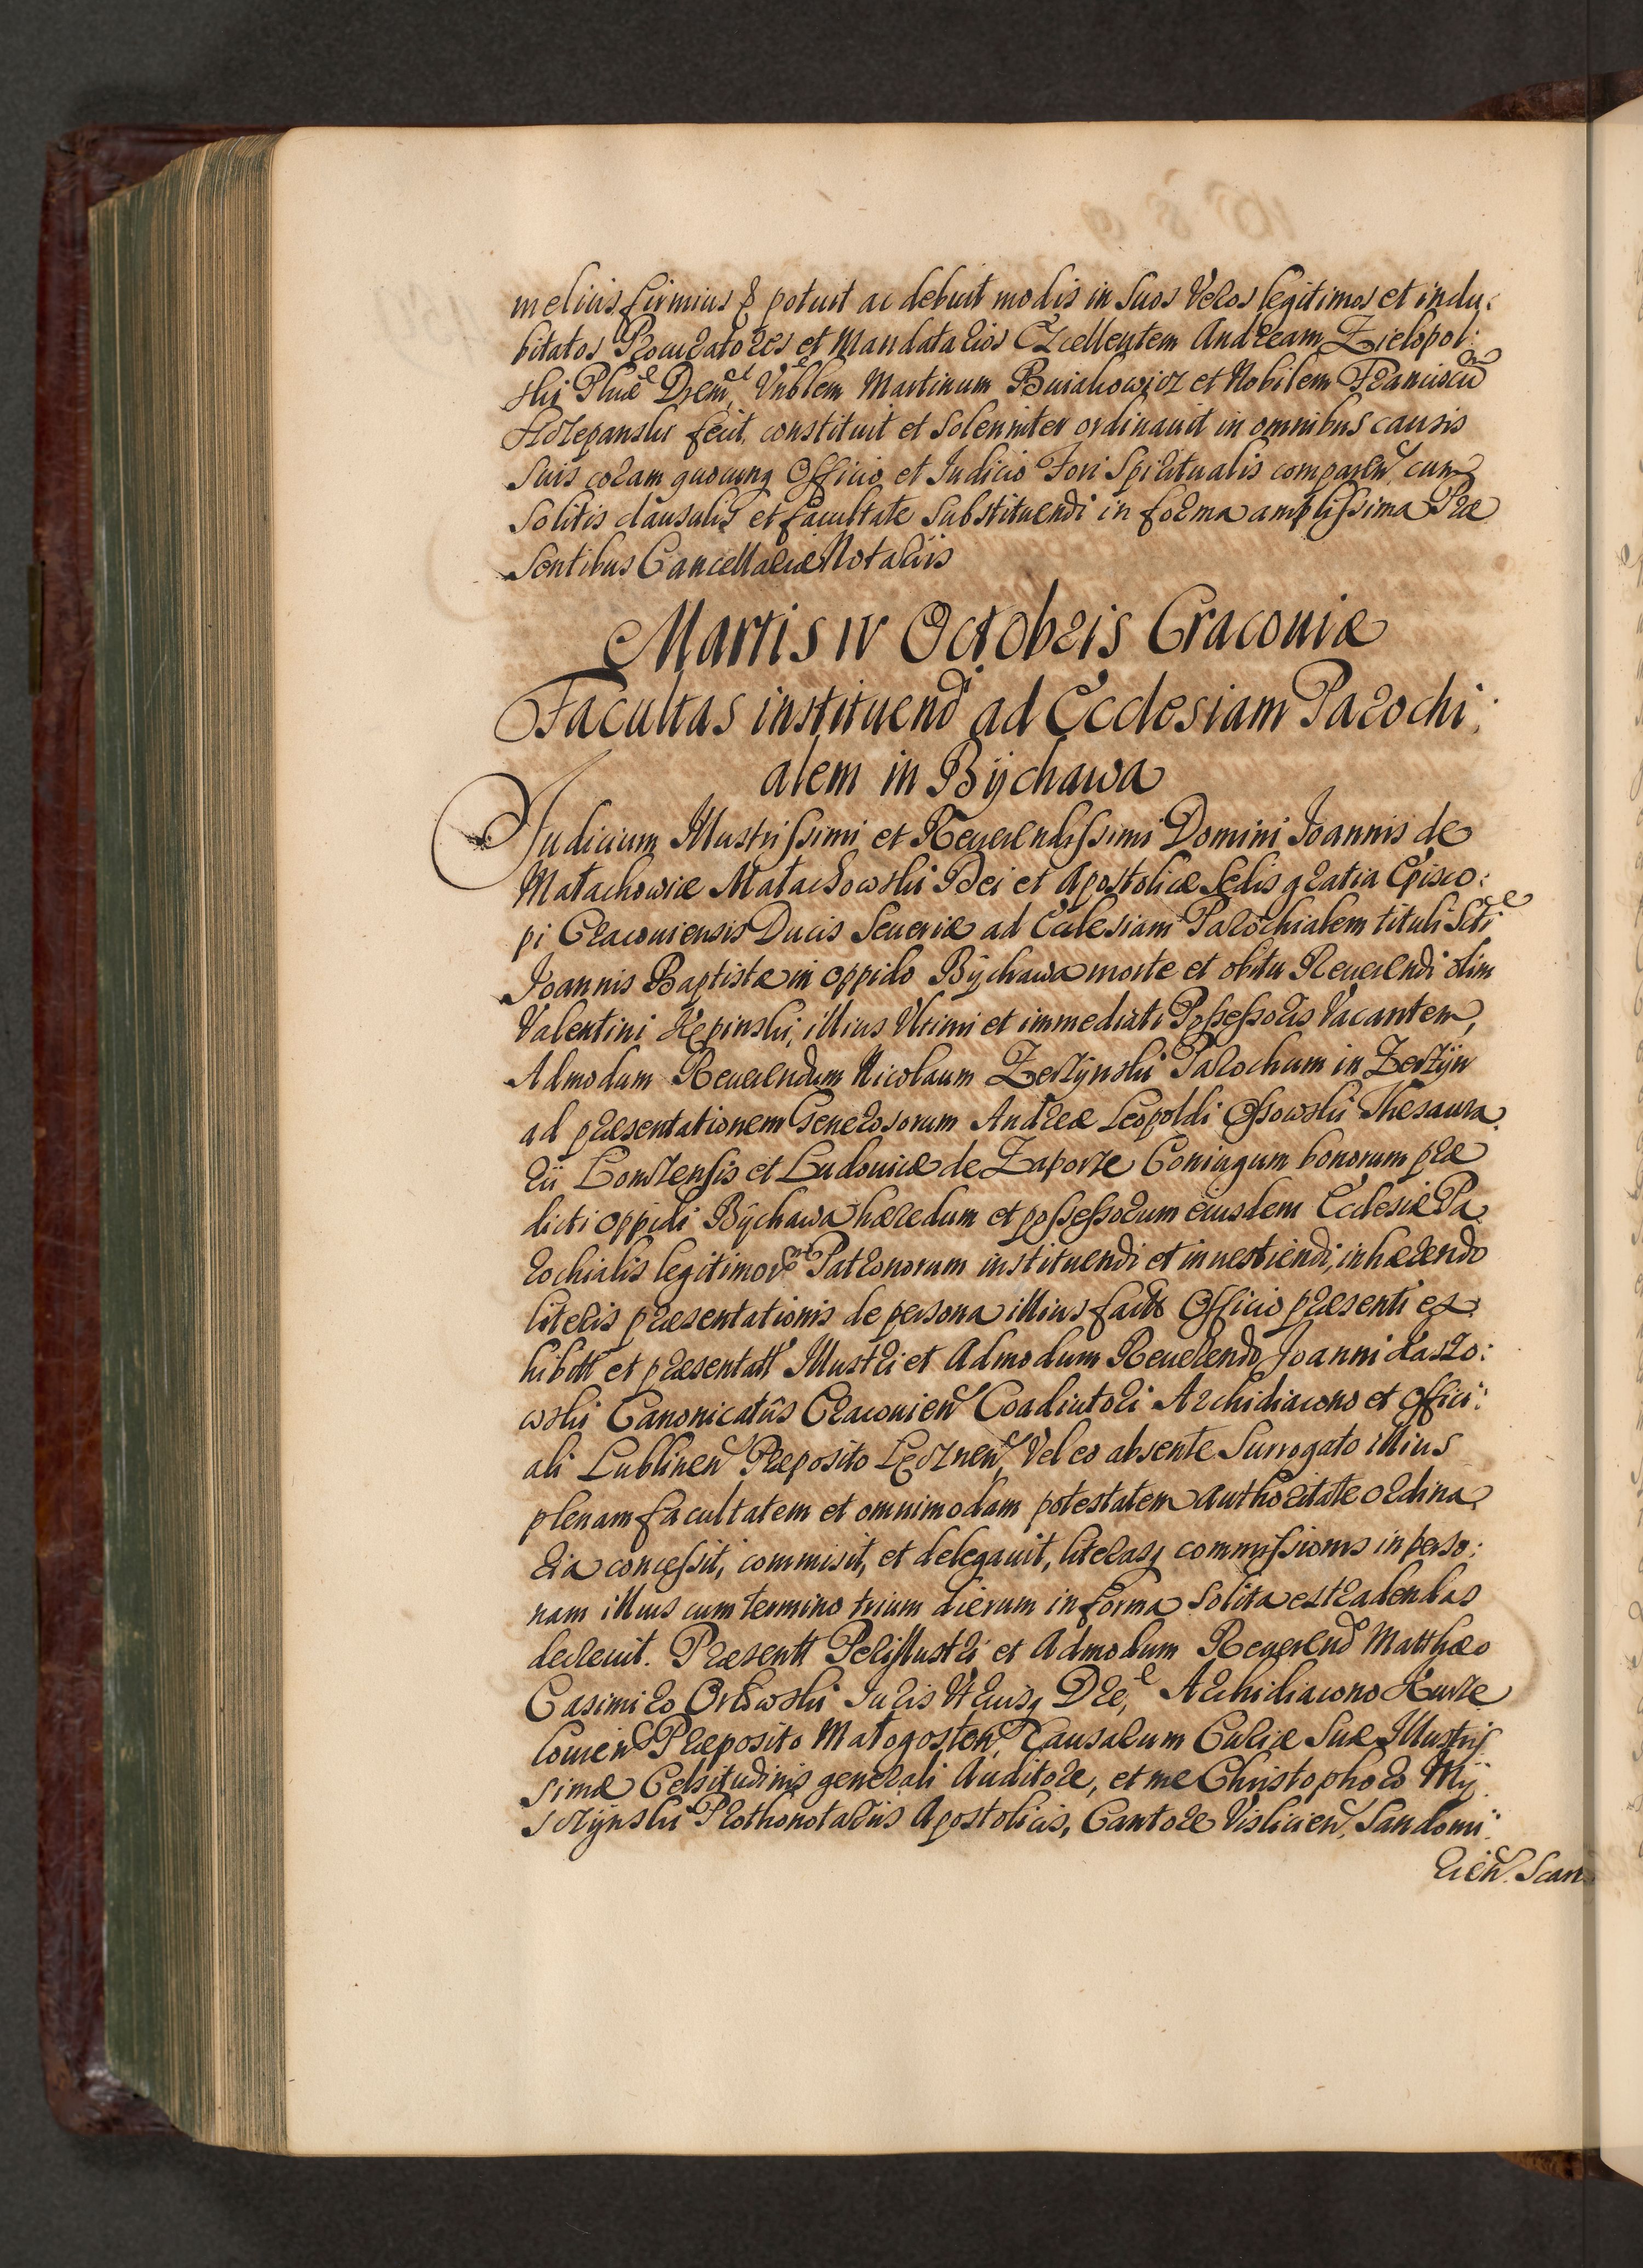 melius, firmius q̃ potuit ac debuit modis in Suos Veros legitimos et indu:
bitatos Procuratores et Mandatarios Excellentem Andream Zielopol:
ski Phiæ Drem, Vnblem Martinum Buiakowicz et Nobilem Franciscũ
Szczepanski fecit, constituit et Solenniter ordinauit in omnibus causis
Suis coram quocunq Officio et Judicio Fori Spiritualis comparen cum
Solitis clausulis et facultate Substituendi in forma amplissima Præ
Sentibus Cancellariæ Notariis
Martis IV Octobris Cracouiæ
Facultas instituendi ad Ecclesiam Parochi:
alem in Bÿchawa
Judicium Illustrissimi et Reuerendissimi Domini Joannis de
Małachowice Małachowski Dei et Apostolicæ Sedis gratia Episco:
pi Cracouiensis Ducis Seueriæ ad Ecclesiam Parochialem tituli Scti
Joannis Baptistæ in oppido Bÿchawa morte et obitu Reuerendi olim
Valentini Kępinski, illius Vltimi et immediati Possessoris Vacantem,
Admodum Reuerendum Nicolaum Zerzÿnski Parochum in Zerzÿn
ad præsentationem Generosorum Andreæ Leopoldi Ossowski Thesaura:
rii Lomzensis et Ludouicæ de Zaporze Coniugum bonorum præ
dicti oppidi Bÿchawa hæredum et possessorum eiusdem Ecclesiæ Pa
rochialis legitimor Patronorum instituendi et inuestiendi, inhærendo
literis præsentationis de persona illius factis Officio præsenti ex
hibitt et præsentatt Illustri et Admodum Reuerendo Joanni Łaszo:
wski Canonicatûs Cracouien Coadiutori Archidiacono et Offici:
ali Lublinen Præposito Łęcznen, Vel eo absente Surrogato illius
plenam facultatem et omnimodam potestatem Authoritate ordina:
ria concessit, commisit, et delegauit, literasq commissionis in perso:
nam illius cum termino trium dierum in forma Solita extradendas
decreuit. Præsentt Perillustri et Admodum Reuerend Matthæo
Casimiro Orłowski Juris Vtriusq Dre, Archidiacono Kurze
louien Præposito Małogosten, Causarum Curiæ Suæ Illustris
simæ Celsitudinis generali Auditore, et me Christophoro Mÿ
szczÿnski Prothonotariis Apostolicis, Cantore Vislicien, Sandomi:
rien. Scar